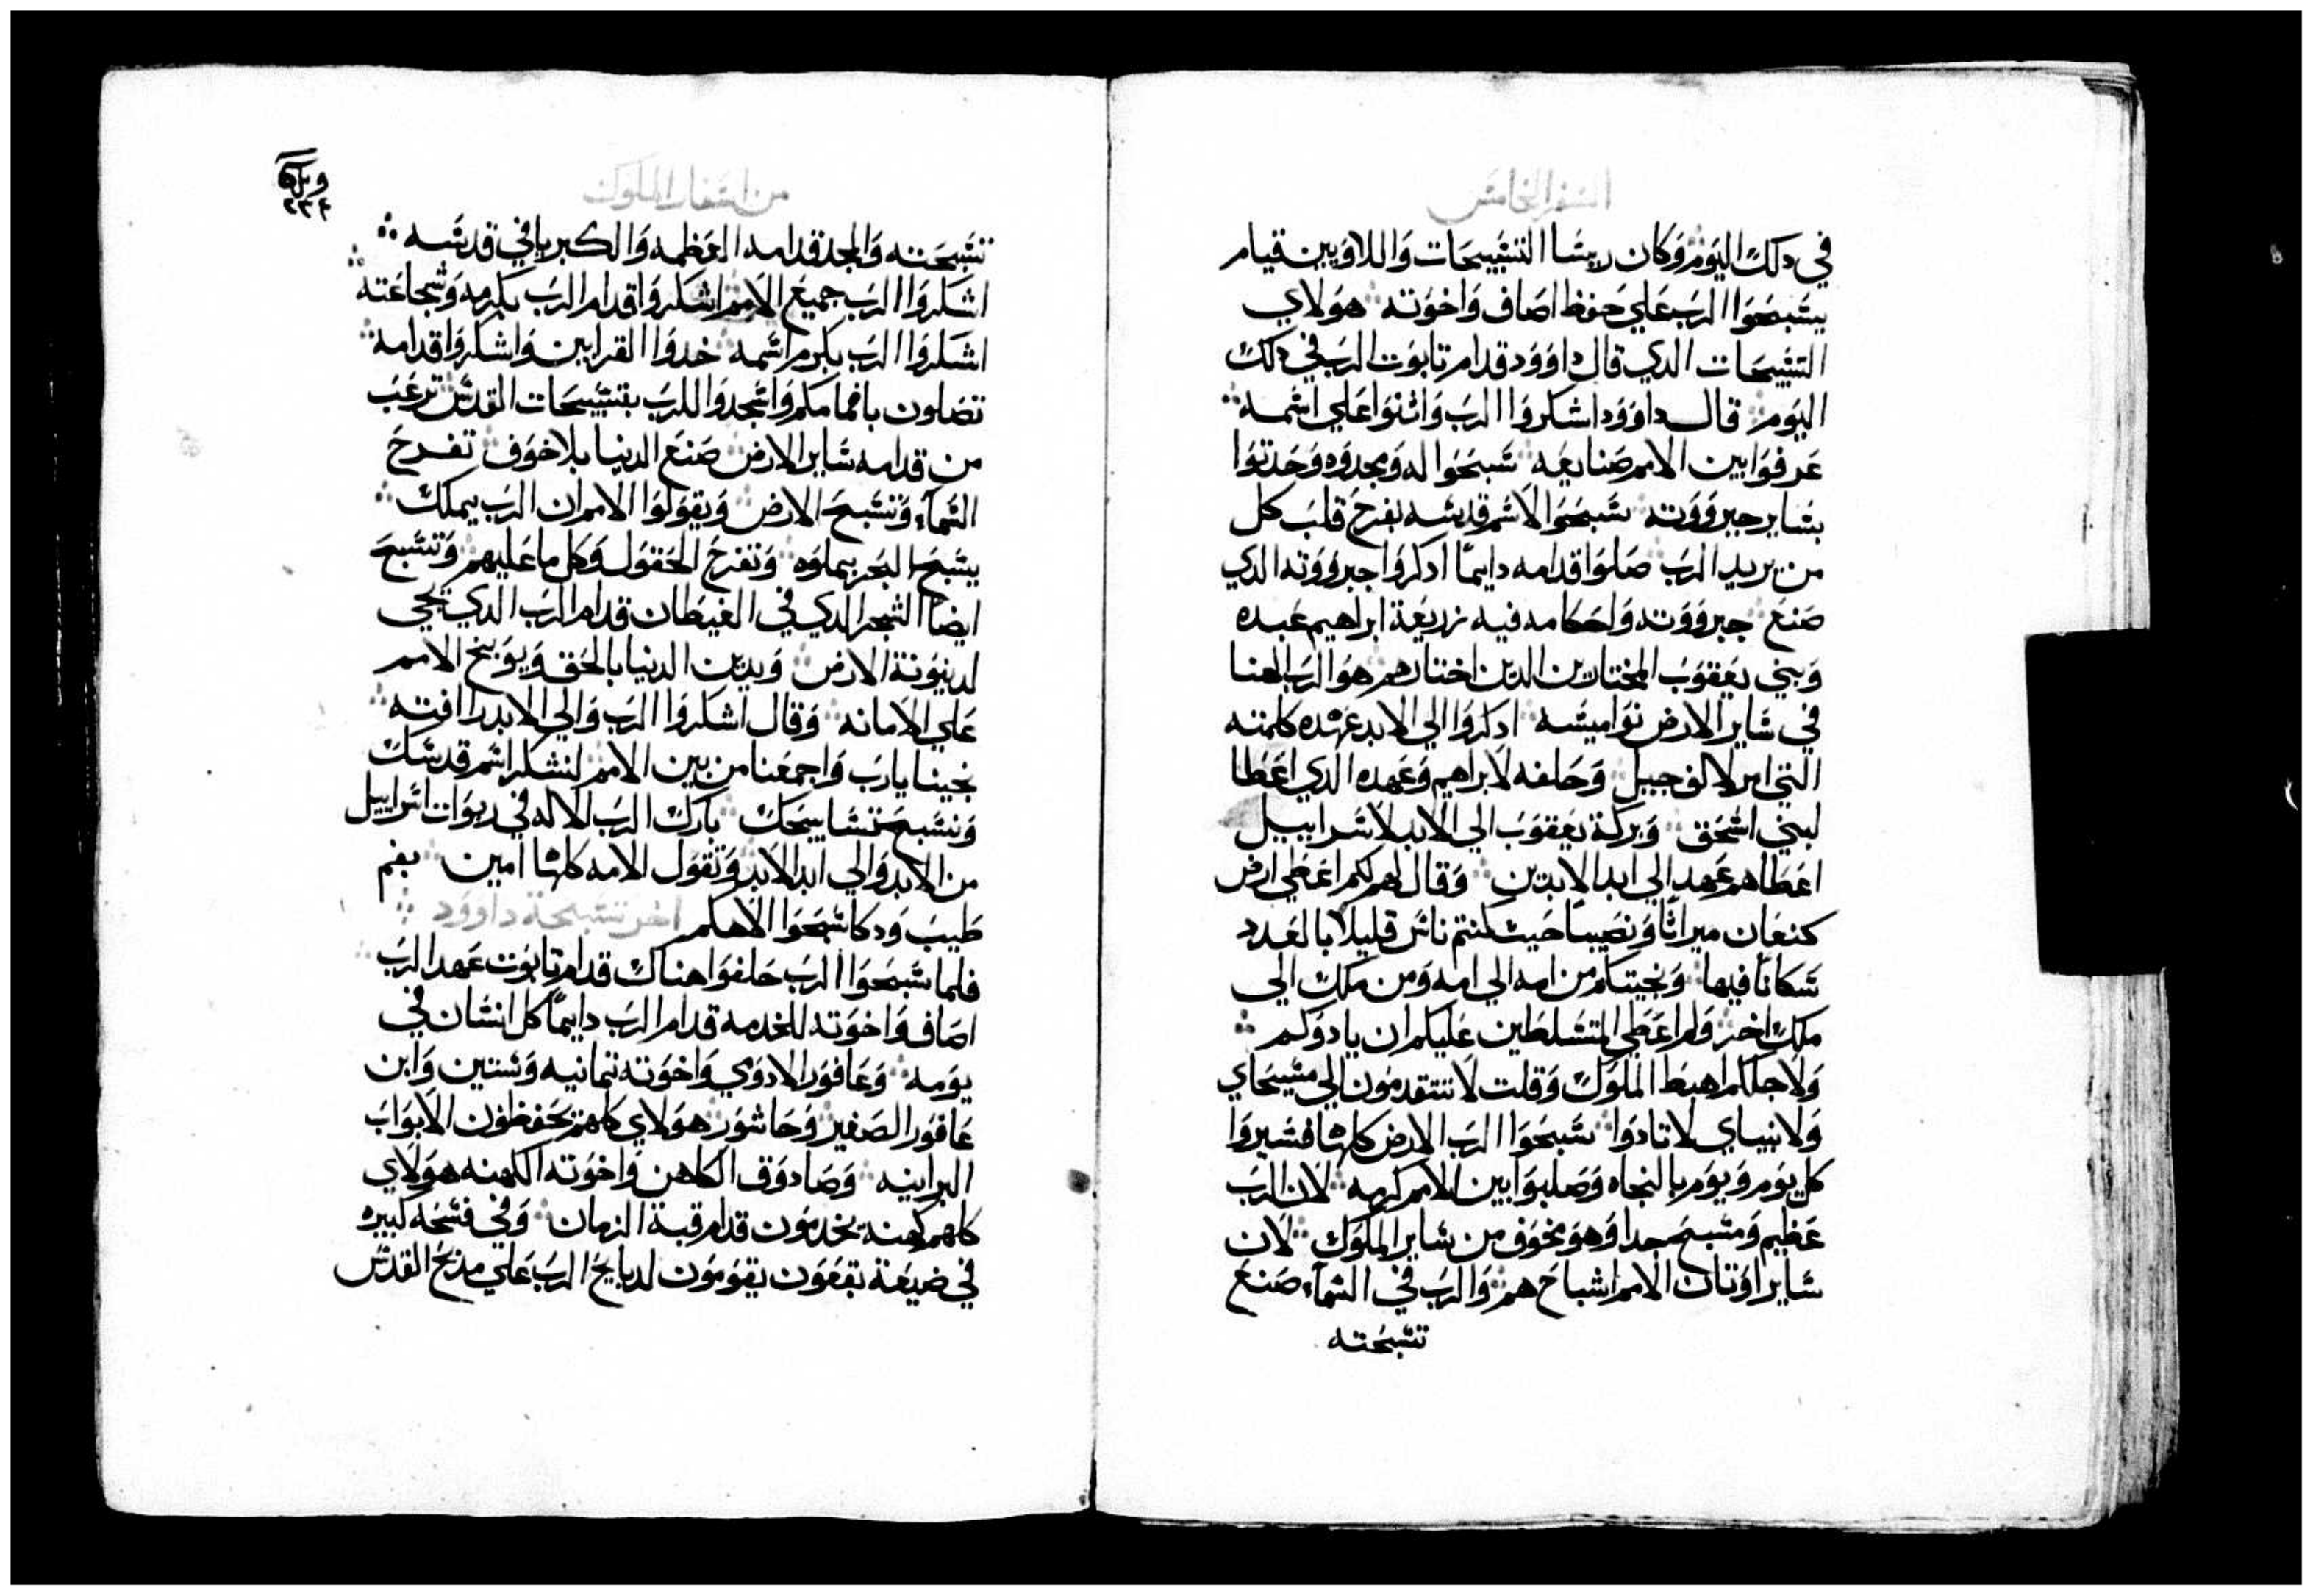 السفر الخامس
في دلك اليوم وكان ريسا التشبيحات واللاويين قيام
يشبحوا الرب علي حفظ اصاف واخوته هولاي
التشبيحات الدي قال داوود قدام تابوت الرب في دلك
اليوم قال داوود اشكروا الرب واثنوا علي اشمه
عرفوا بين الامم صنايعه شبحوا له ومجدوه وحدثوا
بشاير جبرووته شبحوا الاشم قدشه يفرح قلب كل
من يريد الرب صلوا قدامه دايما ادكروا جبرووته الدي
صنع جبرووته واحكامه فيه زريعة ابراهيم عبده
وبني يعقوب المختارين الدين اختارهم هو الرب الهنا
في شاير الارض نواميشه ادكروا الي الابد عهده كلمته
التي امر لالف جيل وحلفه لابراهيم وعهده الدي اعطا
لبني اشحق وبركة يعقوب الي الابد لاشراييل
اعطاهم عهد الي ابد الابدين وقال لهم لكم اعطي ارض
كنعان ميراثا ونصيبا حيث كنتم ناش قليلا بالعدد
شكانا فيها ونجيتكم من امه الي امه ومن ملك الي
ملك اخر ولم اعطي المتشلطين عليكم ان يادوكم
ولاجلكم اهبط الملوك وقلت لا تتقدمون الي مشيحاي
ولانبياي لا تادوا شبحوا الرب الارض كلها فشيروا
كل يوم ويوم بالنجاه وصلبوا بين الامم كرمه لان الرب
عظيم ومشبح جدا وهو مخوف من شاير الملوك لان
شاير اوتان الامم اشباح هم والرب في الشماء صنع
تشبحته
من اشفار الملوك
٢٣٤
تشبحته والمجد قدامه العظمه والكبريا في قدشه
اشكروا الرب جميع الامم اشكروا قدام الرب بكرمه وشجاعته
اشكروا الرب بكرم اشمه خدوا القرابين واشكروا قدامه
تصلون بافمامكم واشجدوا للرب بتشبيحات القدش ترعب
من قدامه شاير الارض صنع الدنيا بلا خوف تفرح
الشماء وتشبح الارض ويقولوا الامم ان الرب يملك
يشبح البحر بملوه وتفرح الحقول وكل ما عليهم وتشبح
ايضا الشجر الدي في الغيطان قدام الرب الدي يجي
لدينونة الارض ويدين الدنيا بالحق ويوبخ الامم
علي الامانه وقال اشكروا الرب والي الابد رافته
نجينا يارب واجمعنا من بين الامم لنشكر اشم قدشك
ونشبح تشابيحك بارك الرب الاله في ربوات اشراييل
من الابد والي ابد الابد وتقول الامه كلها امين بفم
طيب ودكا شبحوا الاهكم اخر تشبحة داوود
فلما شبحوا الرب حلفوا هناك قدام تابوت عهد الرب
اصاف واخوته للخدمه قدام الرب دايما كل انشان في
يومه وعافور الادوي واخوته تمانيه وشتين وابن
عافور الصغير وحاشور هولاي كلهم يحفظون الابواب
البرانيه وصادوق الكاهن واخوته الكهنه هولاي
كلهم كهنه يخدمون قدام قبة الزمان وفي فشحه كبيره
في ضيعة بقعون يقومون لدبايح الرب علي مدبح القدش